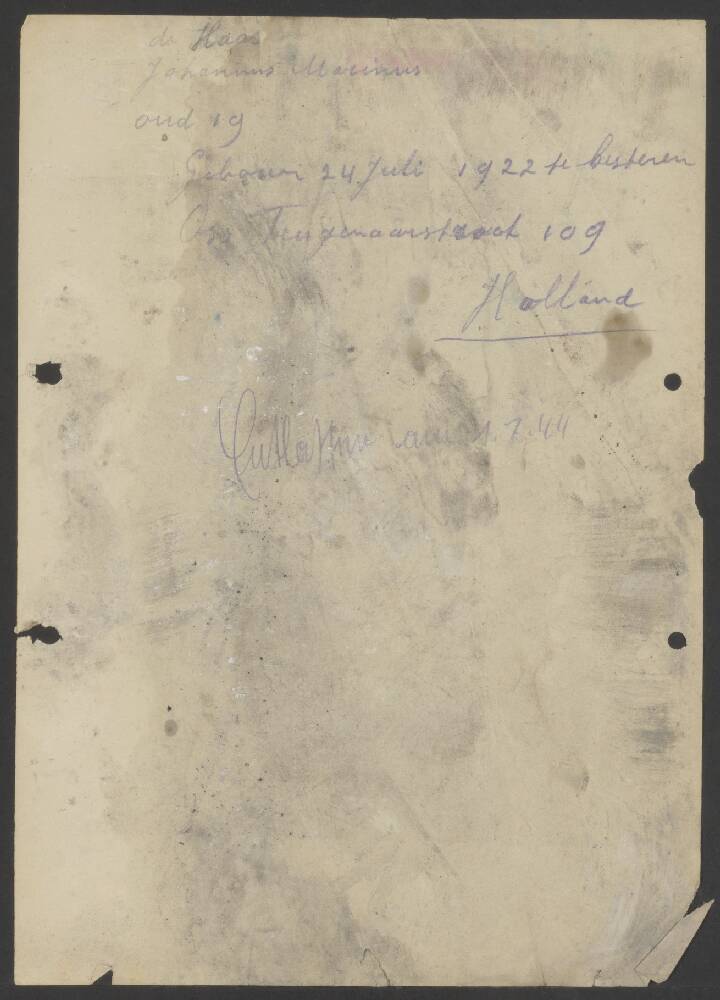 de Haas
Johannus Marinus
oud 19
Geboren 24 Juli 1922 te besteren
Oss Teugenaarstraat 109
Holland
Entlassen am 1.7.44